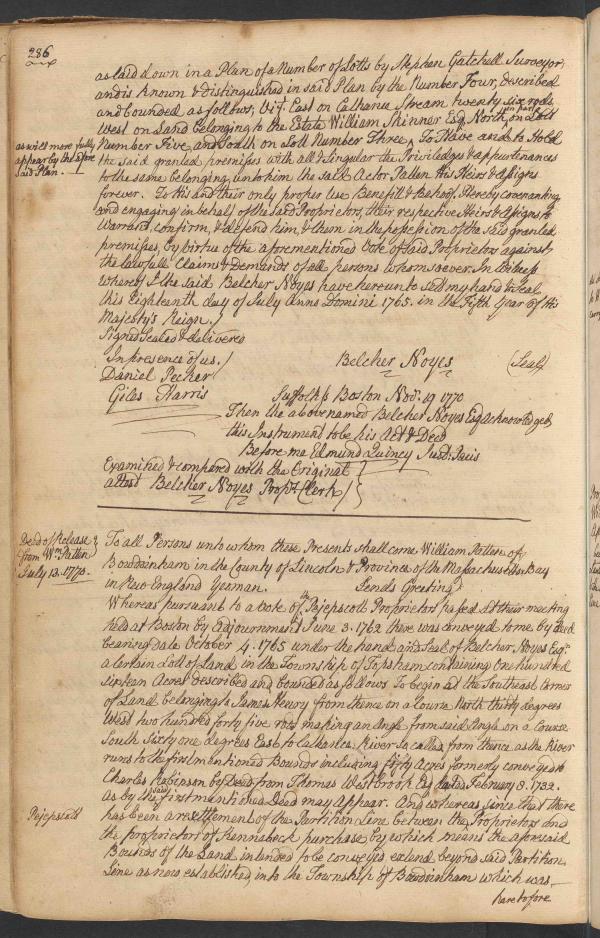 286
as laid down in a Plan of a Number of Lotts by Stephen Gatchell Surveyor,
and is known & distinguished in said Plan by the Number Four, described
and bounded as follows, Vizt. East on Cathance Stream twenty six rods
West on Land belonging to the Estate William Skinner Esq. North in part on Lott
Number Five and South on Lott Number Three, To Have and to Hold
as will more fully
appear by the afore
Said Plan.
the said granted premisses with all & Singular the Priviledges & appurtenances
to the same belonging unto him the said Actor Patten His Heirs & Assigns
forever. To His and their only proper Use Benefitt & Behoof. Hereby covenanting
and engaging in behalf of the said Proprietors, their respective Heirs & Assigns to
Warrant, confirm, & defend him, & them in the possession of the said granted
premisses, by virtue of the aforementioned Vote of said Proprietors against
the lawfull Claims & Demands of all persons whomsoever. In Witness
whereof I the said Belcher Noyes have hereunto Sett my hand & Seal
this Eighteenth day of July Anno Domini 1765. in the Fifth Year of His
Majesty's Reign.
Signed Sealed & delivered
In presence of us.
Belcher Noyes (Seal)
Daniel Pecker
Giles Harris
Suffolk ss Boston Novr. 19 1770
Then the above named Belcher Noyes Esq Acknowledged
this Instrument to be his Act & Deed
Before me Edmund Quincy Just. Pacis
Examined & compared with the Original
attest Belcher Noyes Propts Clerk
Deed of Release
from Wm. Patten
July 13. 1770.
To all Persons unto whom these Presents shall come William Patten of
Bowdoinham in the County of Lincoln & Province of the Massachusetts Bay
in New England Yeoman. Sends Greeting
Whereas pursuant to a Vote of the Pejepscott Proprietors passed at their meeting
held at Boston by Adjournment June 3. 1762 there was conveyed to me by deed
bearing date October 4. 1765 under the hand and Seal of Belcher Noyes Esqr.
a certain Lott of Land in the Township of Topsham containing One hundred
sixteen Acres described and bounded as follows To begin at the Southeast Corner
of Land belonging to James Henry from thence on a Course North thirty degrees
West two hundred forty five rods making an Angle from said Angle on a Course
South Sixty one degrees East to Cathance River so called, from thence as the River
runs to the first mentioned Bounds including fifty Acres formerly conveyed to
Charles Robinson by Deed from Thomas Westbrook Esq dated February 8. 1732.
As by the said first mentioned Deed may Appear. And whereas since that there
Pejepscott
has been a resettlement of the Partition Line between the Proprietors and
the proprietors of Kennebeck purchase by which means the aforesaid
Bounds of the Land intended to be conveyed extend beyond said Partition
Line as now established, into the Township of Bowdoinham which was
heretofore